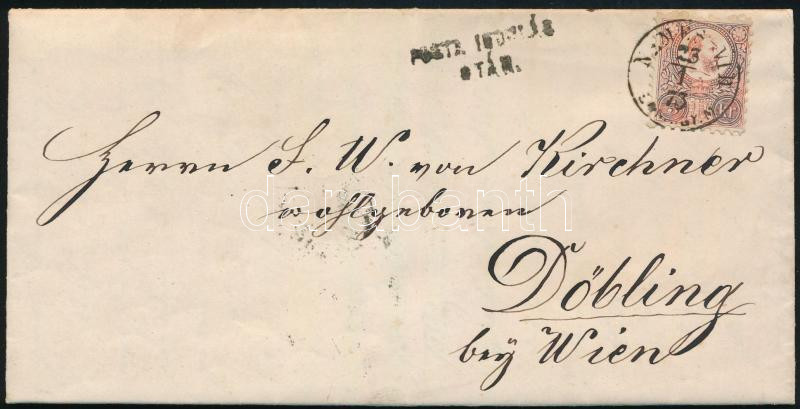 POSTA INDULÁS
UTÁN.
23
1
73
Kr
Herrn F. W. von Kirchner
wohlgeboren
Döbling
bey Wien
darabanth